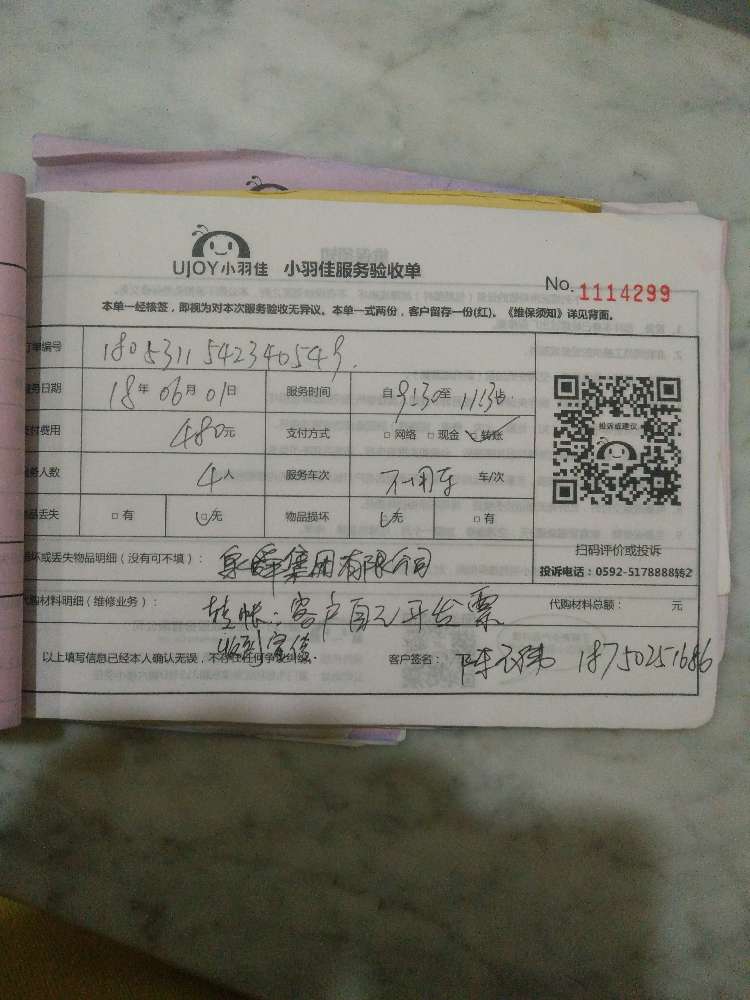 UJOY小羽佳 小羽佳服务验收单
No. 1114299
本单一经核签，即视为对本次服务验收无异议。本单一式两份，客户留存一份(红)、《维保须知》详见背面。
单编号 180531154234054
务日期 18年06月01日 服务时间 自9:30至11:30
付费用 480元 支付方式 □网络 □现金 □转账
务人数 4人 服务车次 不用车 车/次
品丢失 □有 □无 物品损坏 □无 □有
投诉或建议
扫码评价或投诉
投诉电话：0592-5178888转2
坏或丢失物品明细（没有可不填）： 泉舜集团有限公司
代购材料明细（维修业务）： 转帐：客户自己开发票
代购材料总额： 元
收到宣传
以上填写信息已经本人确认无误，不存在任何争议纠纷。 客户签名： 陈 18750251686